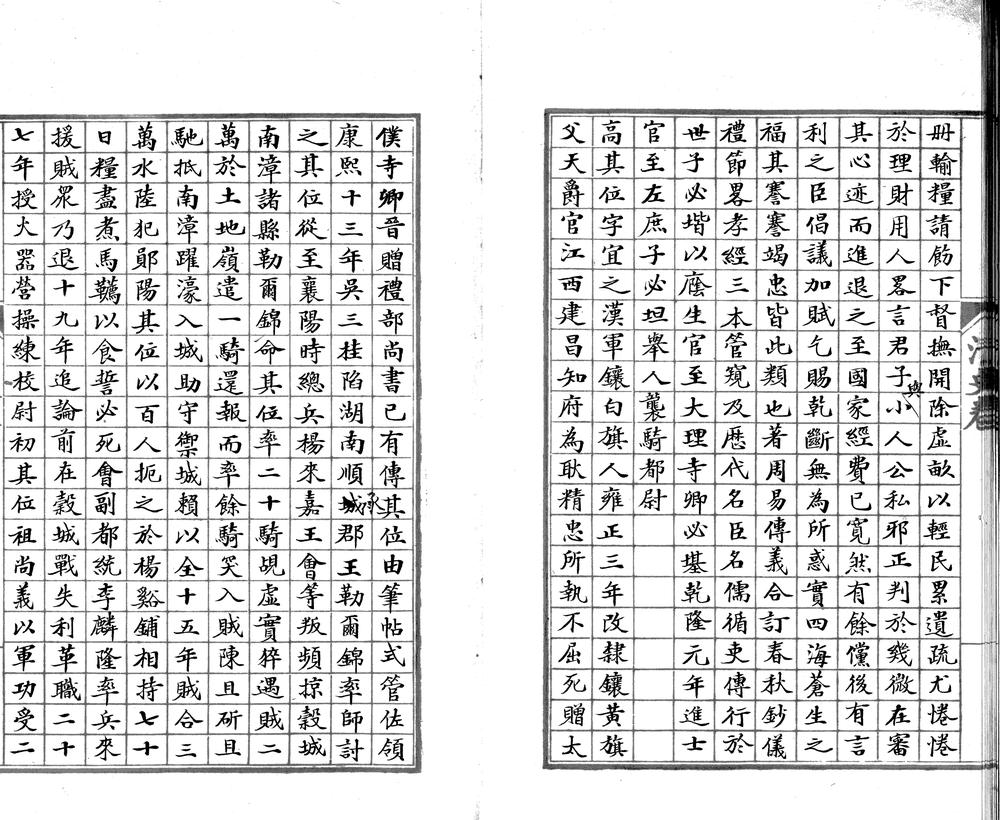 冊輸糧請飭下督撫開除虛畝以輕民累遺疏尤惓惓
於理財用人畧言君子與小人公私邪正判於幾微在審
其心迹而進退之至國家經費已寬然有餘儻後有言
利之臣倡議加賦乞賜乾斷無為所惑實四海蒼生之
福其謇謇竭忠皆此類也著周易傳義合訂春秋鈔儀
禮節畧孝經三本管窺及歷代名臣名儒循吏傳行於
世子必堦以廕生官至大理寺卿必堪乾隆元年進士
官至左庶子必坦舉人襲騎都尉
高其位字宜之漢軍鑲白旗人雍正三年改隸鑲黃旗
父天爵官江西建昌知府為耿精忠所執不屈死贈太
僕寺卿晉贈禮部尚書已有傳其位由筆帖式管佐領
康熙十三年吳三桂陷湖南順承郡王勒爾錦率師討
之其位從至襄陽時總兵楊來嘉王會等叛頻掠穀城
南漳諸縣勒爾錦命其位率二十騎覘虛實猝遇賊二
萬於土地嶺遣一騎還報而率餘騎突入賊陳且斫且
馳抵南漳躍濠入城助守禦城賴以全十五年賊合三
萬水陸犯鄖陽其位以百人扼之於楊谿鋪相持七十
日糧盡煮馬韉以食誓必死會副都統李麟隆率兵來
援賊眾乃退十九年追論前在穀城戰失利革職二十
七年授火器營操練校尉初其位祖尚義以軍功受二